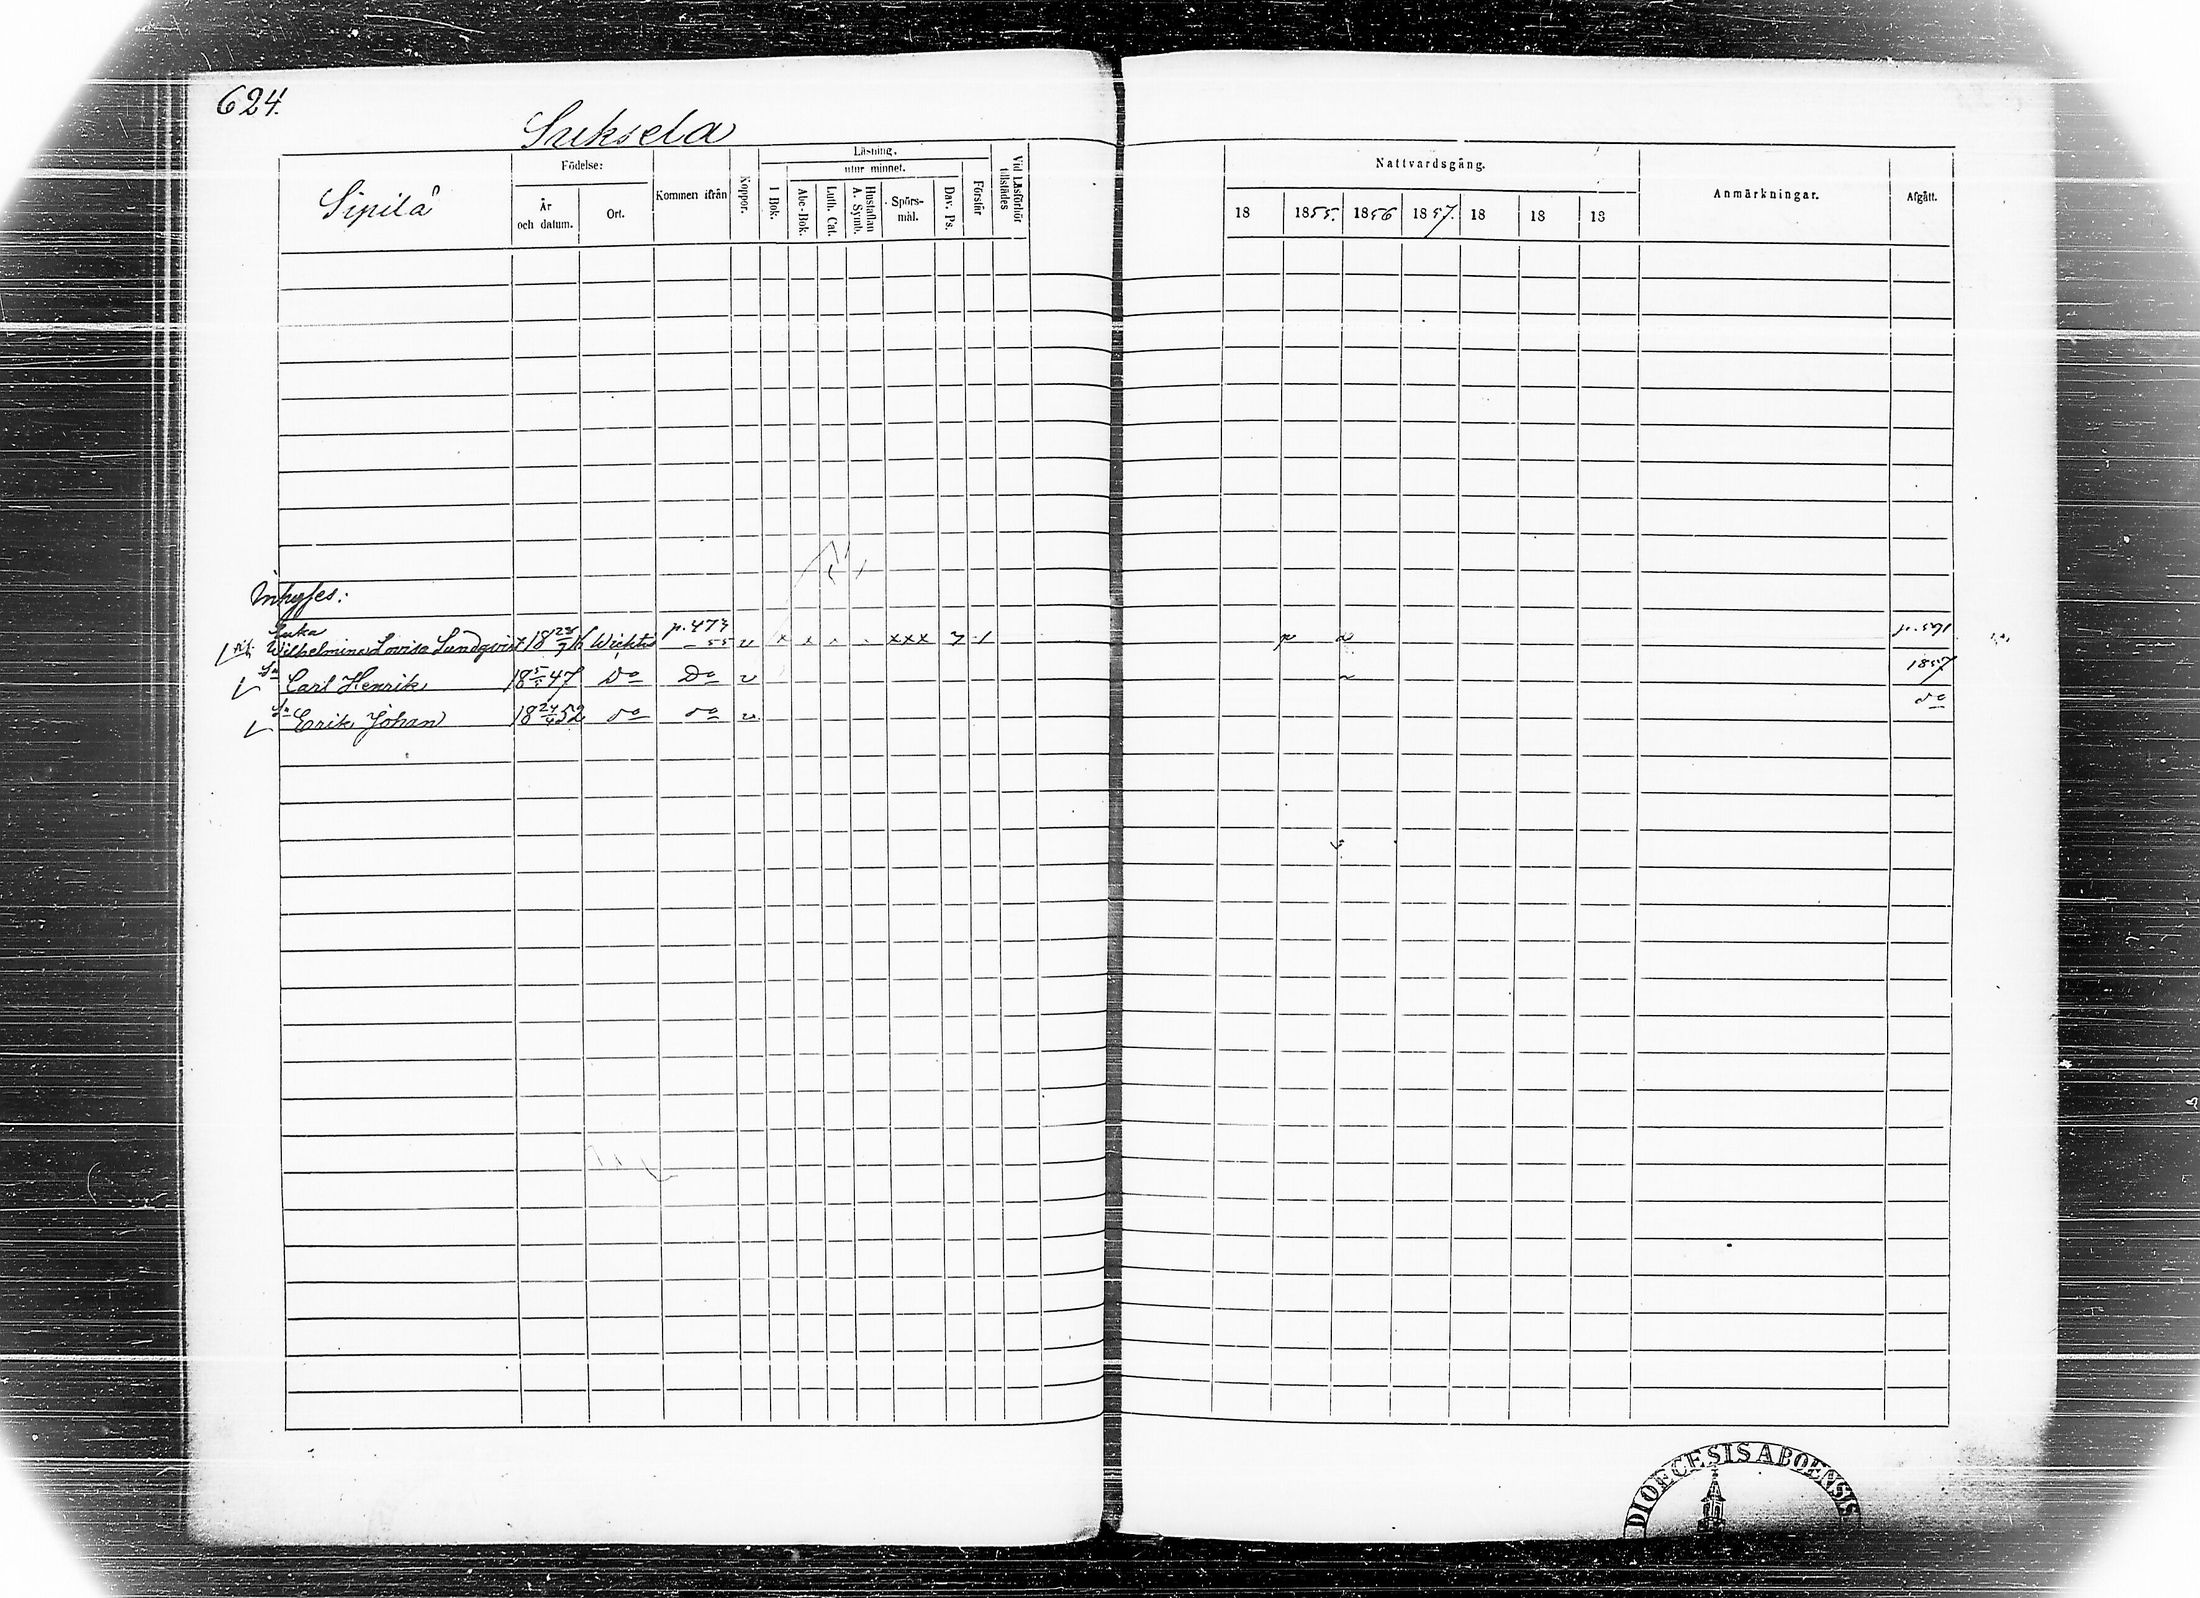 624.
Suksela
Sipilä
Födelse:
År och datum.
Ort.
Kommen ifrån
Koppor.
Läsning.
utur minnet.
I Bok.
Abc-Bok.
Luth. Cat.
Hustaflan A. Symb.
Spörs-mål.
Dav. Ps.
Förstår
Vid Läsförhör tillstädes
Nattvardsgång.
18 1855. 1856 1857. 18 18 18
Anmärkningar.
Afgått.
Inhyses:
Enka p. 473
Wilhelmina Lovisa Lundqvist 18 Wichtis - 55 v x x xxx
Sn Carl Henrik 18 5/5 47 Do Do v 1857
Sn Erik Johan 18 24/4 52 do do v do
DIOECESIS ABOENSIS